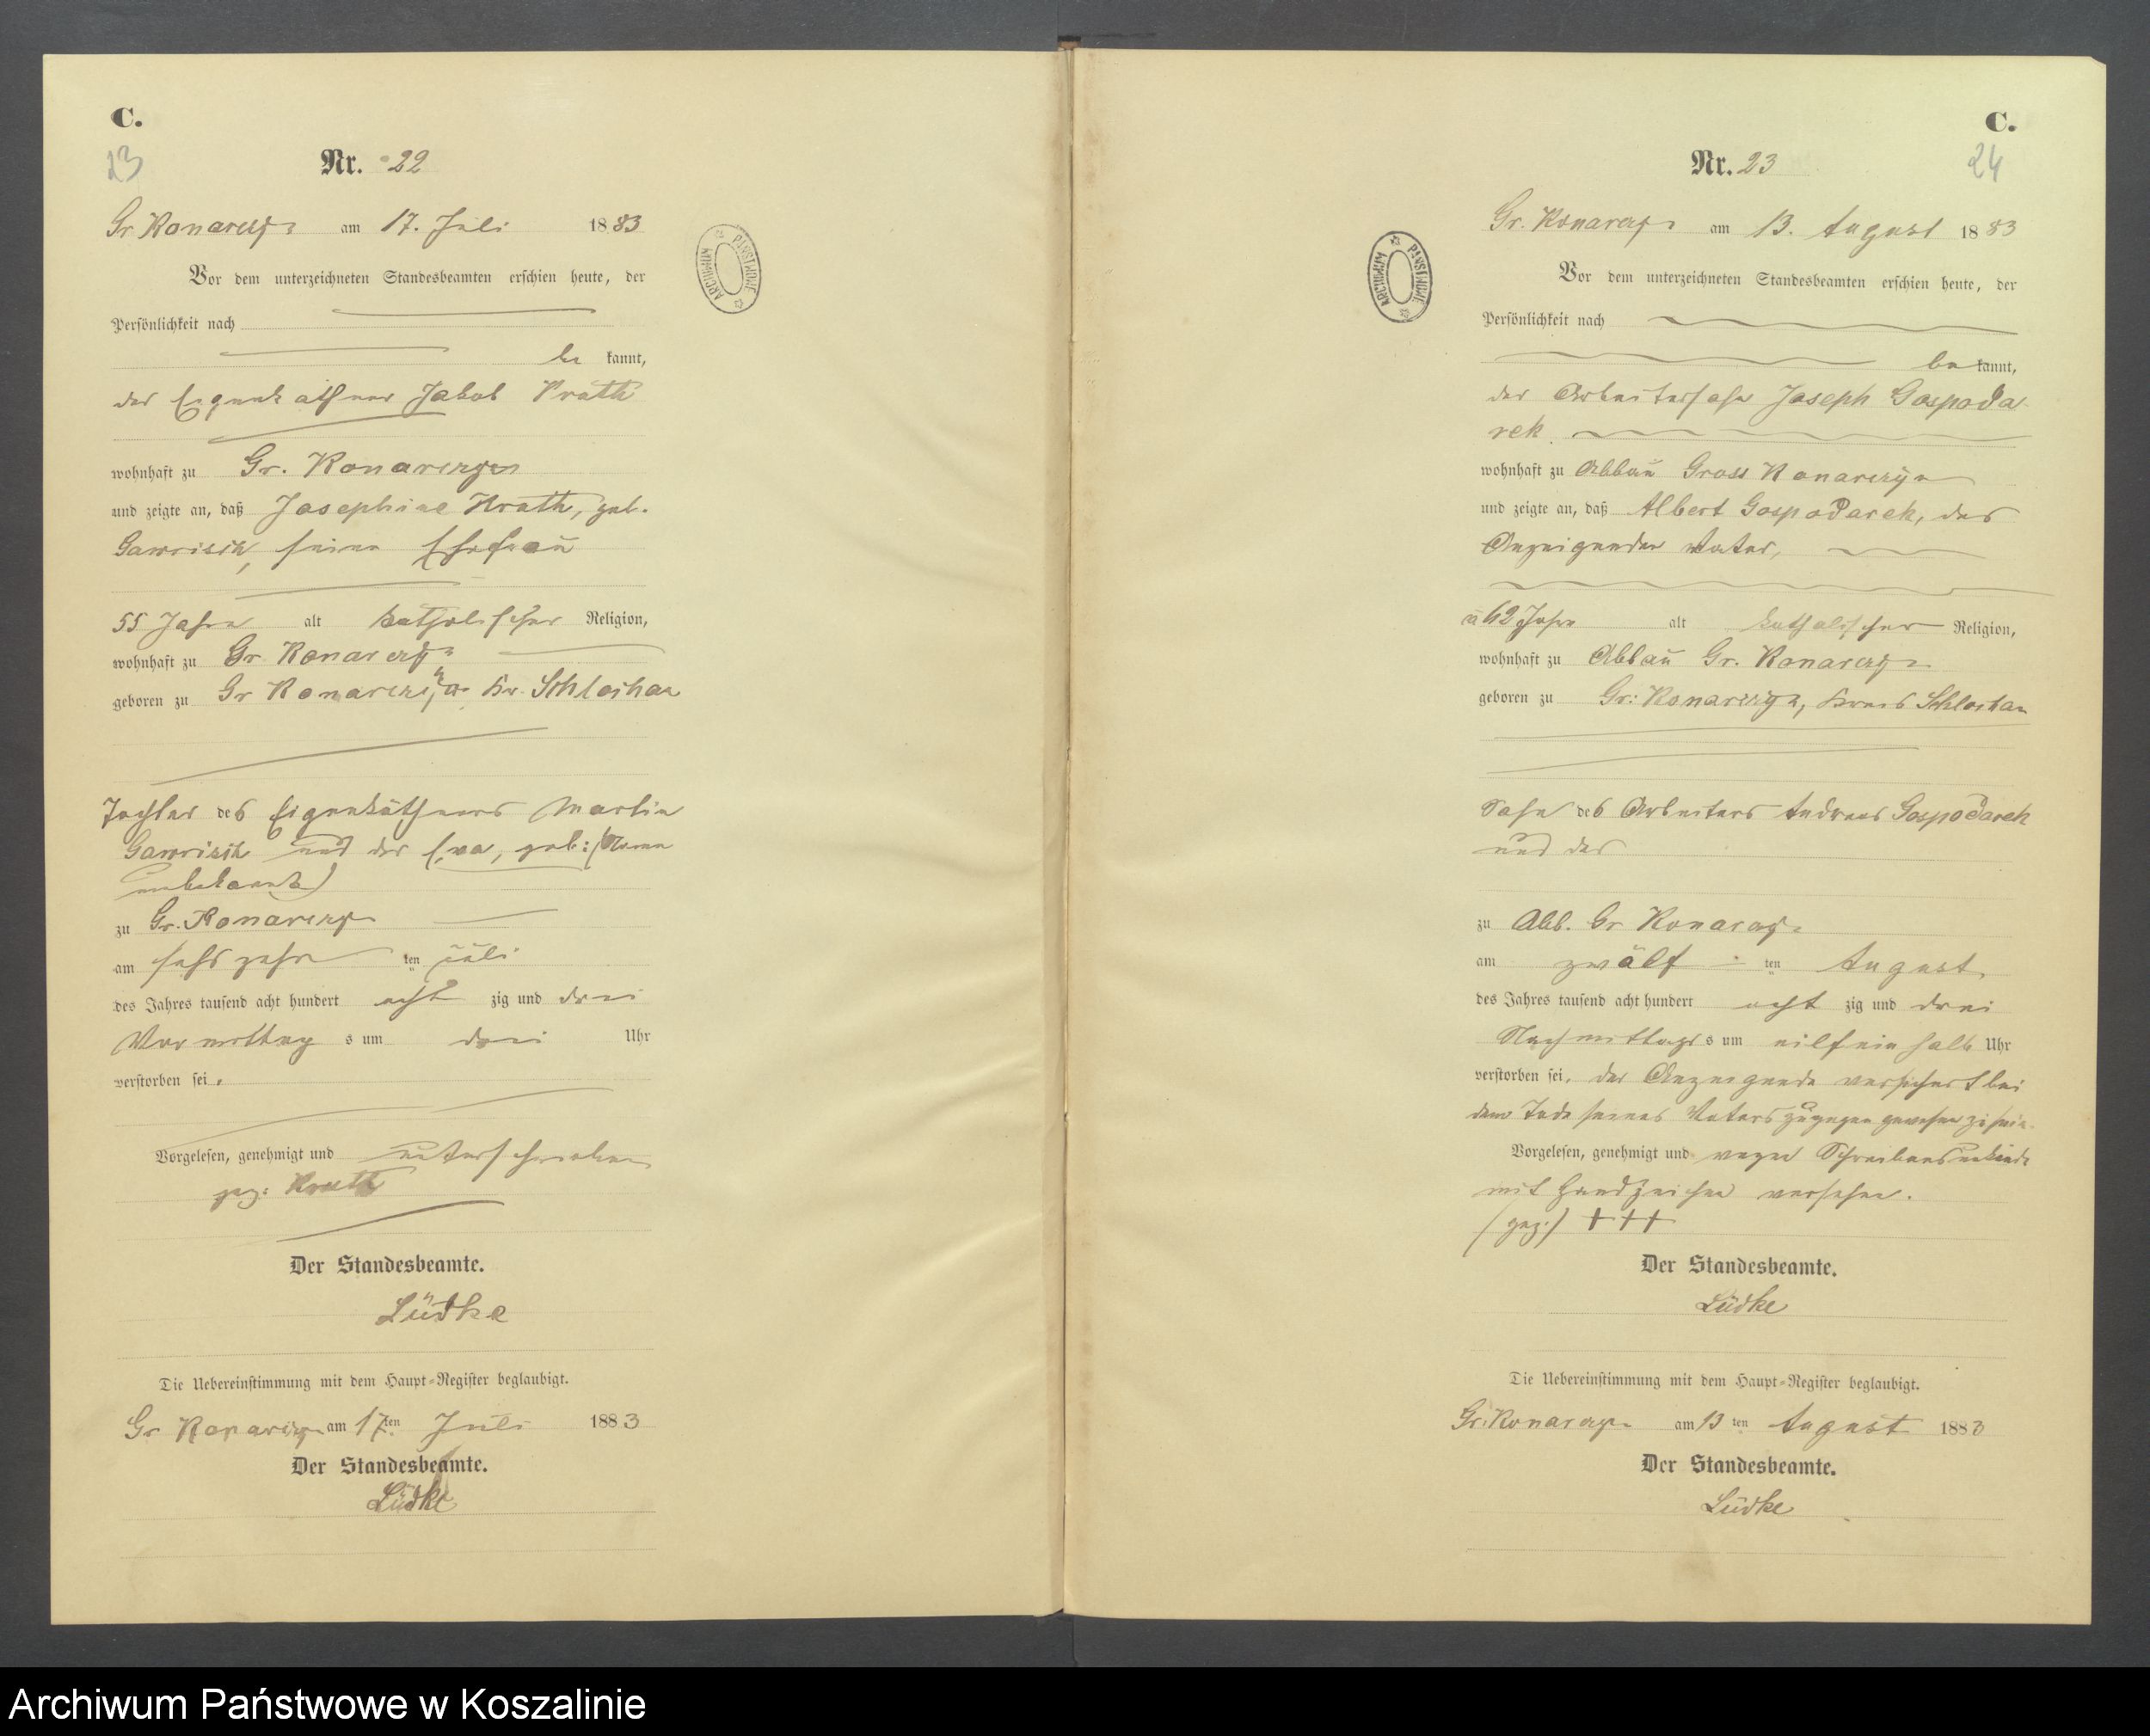 C.
23
Nr. 22
Gr Konarczyn am 17. Juli 1883
Vor dem unterzeichneten Standesbeamten erschien heute, der
Persönlichkeit nach
be kannt,
der Eigenkäthner Jakob Krath
wohnhaft zu Gr. Konarczyn
und zeigte an, daß Josephine Krath, geb.
Gawrisch, seine Ehefrau
55 Jahre alt katholischer Religion,
wohnhaft zu Gr. Konarczyn
geboren zu Gr Konarczyn Kr. Schlochau
Tochter des Eigenkäthners Martin
Gawrisch und der Eva, geb: (Name
unbekannt)
zu Gr. Konarczyn
am sechszehn ten Juli
des Jahres tausend acht hundert acht zig und drei
Vormittag s um drei Uhr
verstorben sei.
Vorgelesen, genehmigt und unterschrieben
gez: Krath
Der Standesbeamte.
Lüdke
Die Uebereinstimmung mit dem Haupt-Register beglaubigt.
Gr Konarczyn am 17ten Juli 1883
Der Standesbeamte.
Lüdke
ARCHIWUM PAŃSTWOWE
C.
24
Nr. 23
Gr. Konarczyn am 13. August 1883
Vor dem unterzeichneten Standesbeamten erschien heute, der
Persönlichkeit nach
be kannt,
der Arbeitersohn Joseph Gospoda
rek
wohnhaft zu Abbau Gross Konarczyn
und zeigte an, daß Albert Gospodarek, des
Anzeigenden Vater,
62 Jahre alt katholischer Religion,
wohnhaft zu Abbau Gr. Konarczyn
geboren zu Gr: Konarczyn, Kreis Schlochau
Sohn des Arbeiters Andreas Gospodarek
und der
zu Abb. Gr Konarczyn
am zwölf ten August
des Jahres tausend acht hundert acht zig und drei
Nachmittags s um eilfeinhalb Uhr
verstorben sei. der Anzeigende versichert bei
dem Tode seines Vaters zugegen gewesen zu sein.
Vorgelesen, genehmigt und wegen Schreibensunkunde
mit Handzeichen versehen.
(gez.) +++
Der Standesbeamte.
Lüdke
Die Uebereinstimmung mit dem Haupt-Register beglaubigt.
Gr. Konarczyn am 13 ten August 1883
Der Standesbeamte.
Lüdke
ARCHIWUM PAŃSTWOWE
Archiwum Państwowe w Koszalinie